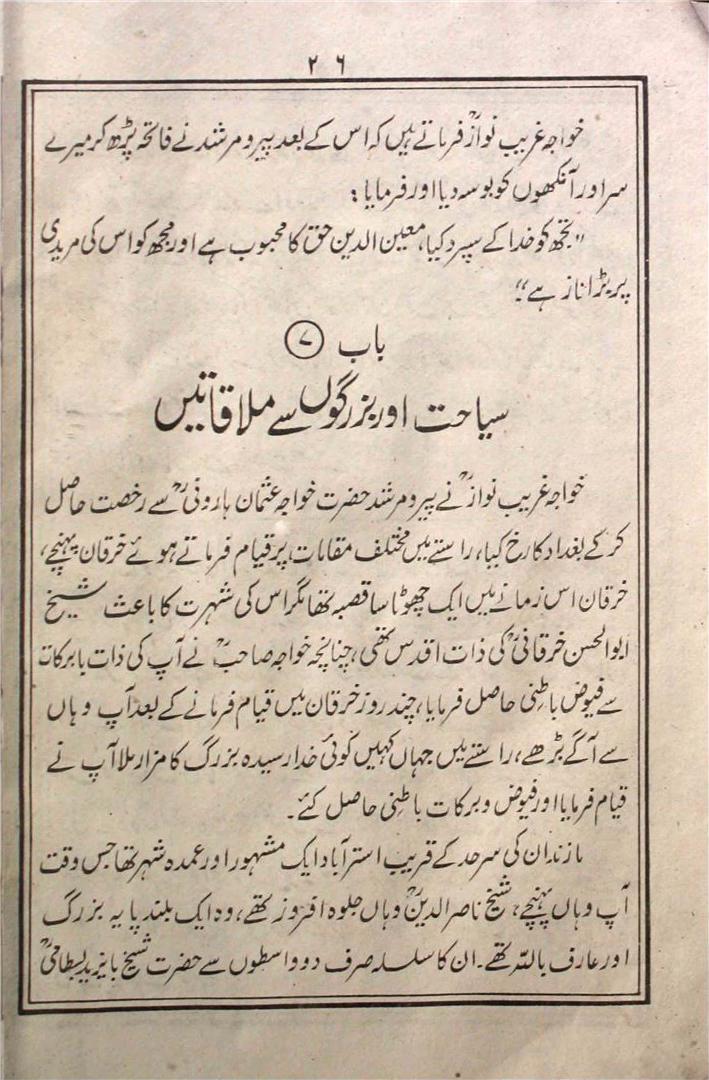 ۲۶
خواجہ غریب نوازؒ فرماتے ہیں کہ اس کے بعد پیر و مرشد نے فاتحہ پڑھ کر میرے
سر اور آنکھوں کو بوسہ دیا اور فرمایا:
"تجھ کو خدا کے سپرد کیا، معین الدین حق کا محبوب ہے اور مجھ کو اس کی مریدی
پر بڑا ناز ہے"۔
باب ۷
سیاحت اور بزرگوں سے ملاقاتیں
خواجہ غریب نوازؒ نے پیر و مرشد حضرت خواجہ عثمان ہارونیؒ سے رخصت حاصل
کر کے بغداد کا رخ کیا، راستے میں مختلف مقامات پر قیام فرماتے ہوئے خرقان پہنچے،
خرقان اس زمانے میں ایک چھوٹا سا قصبہ تھا مگر اس کی شہرت کا باعث شیخ
ابوالحسن خرقانیؒ کی ذات اقدس تھی، چنانچہ خواجہ صاحبؒ نے آپ کی ذات بابرکات
سے فیوض باطنی حاصل فرمایا، چند روز خرقان میں قیام فرمانے کے بعد آپ وہاں
سے آگے بڑھے، راستے میں جہاں کہیں کوئی خدا رسیدہ بزرگ کا مزار ملا آپ نے
قیام فرمایا اور فیوض و برکات باطنی حاصل کئے۔
مازندان کی سرحد کے قریب استرآباد ایک مشہور اور عمدہ شہر تھا جس وقت
آپ وہاں پہنچے، شیخ ناصر الدینؒ وہاں جلوہ افروز تھے، وہ ایک بلند پایہ بزرگ
اور عارف باللہ تھے۔ ان کا سلسلہ صرف دو واسطوں سے حضرت شیخ بایزید بسطامیؒ